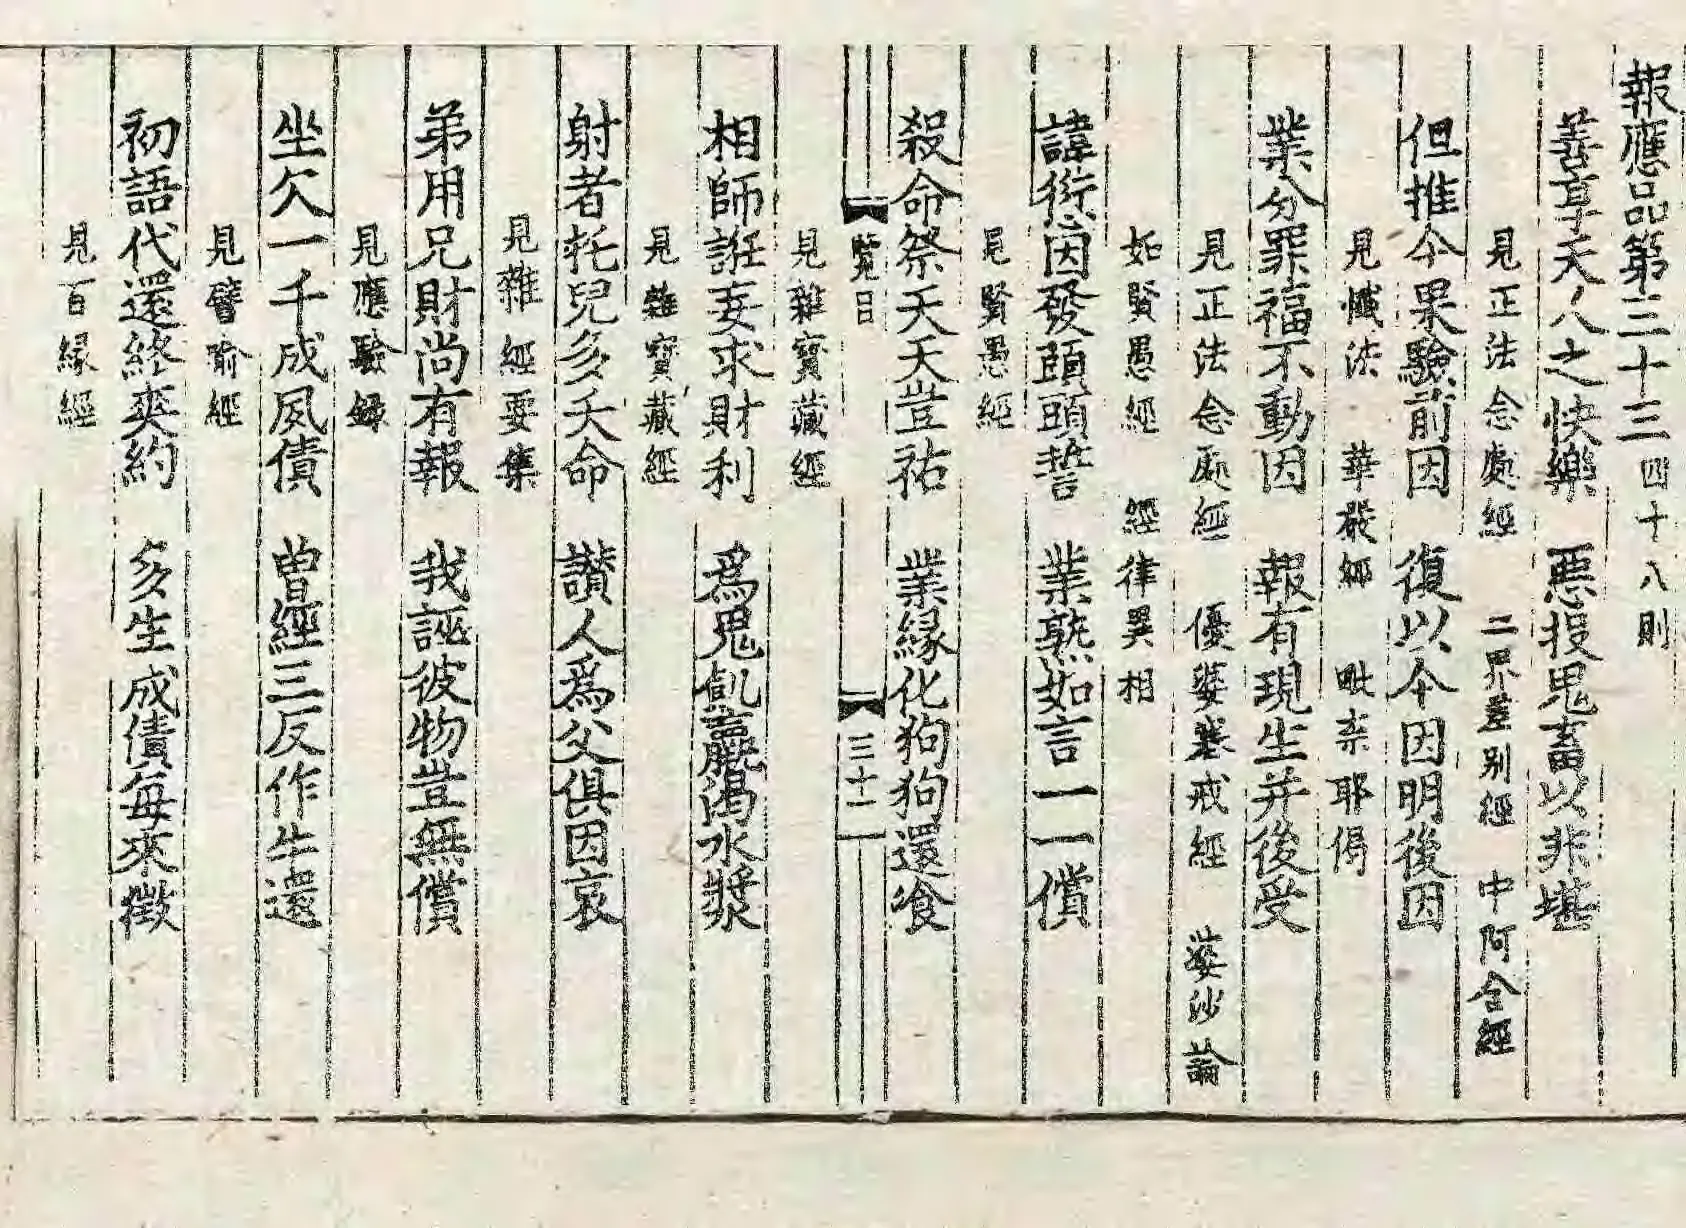 報應品第三十三 四十八則
善享天人之快樂 惡投鬼畜以非堪
見正法念處經 二界差别經 中阿含經
但推今果驗前因 復以今因明後因
見懺法 華嚴經 毗柰耶偈
業分罪福不動因 報有現生并後受
見正法念處經 優婆塞戒經 婆沙論
如賢愚經 經律異相
諱愆因發頭頭誓 業熟如言一一償
見賢愚經
殺命祭天天豈祐 業緣化狗狗還飡
覧日 三十一
見雜寶藏經
相師誑妄求財利 爲鬼飢羸渴水漿
見雜寶藏經
射者托兒多夭命 讃人爲父俱因哀
見雜經要集
弟用兄財尚有報 我誣彼物豈無償
見應驗録
坐欠一千成夙債 曽經三反作牛還
見譬喻經
初語代還終爽約 多生成債每來徵
見百緣經